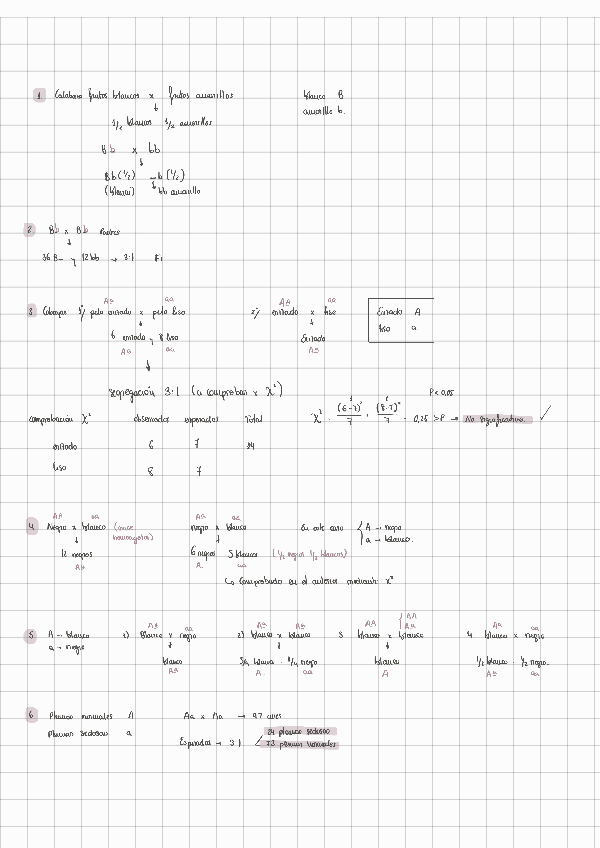 1 Calabaza frutos blancos x frutos amarillos blanco B
↓ amarillo b.
1/2 blancos 1/2 amarillos
Bb x bb
↓
Bb (1/2) _b (1/2)
(blanco) ↳ bb amarillo
2 Bb x Bb Padres
↓
36 B_ y 12 bb → 3:1 F1
3 Cobayas 1º/ pelo rizado x pelo liso 2/ rizado x liso Rizado A
6 rizado y 8 liso Rizado liso a
Aa aa
↓
Segregación 3:1 (a comprobar x X²) P < 0,05
comprobación X² observados esperados Total X² = (6-7)²/7 + (8-7)²/7 = 0,25 > P → No significativa. ✓
rizado 6 7 14
liso 8 7
AA aa
4 Negro x blanco negro x blanco En este caso A → negro
↓ ↓ a → blanco.
12 negros 6 negros 5 blancos (1/2 negros 1/2 blancos)
↳ Comprobado en el anterior mediante X²
5 A → blanco 1) blanco x negro 2) blanco x blanco 3 blanco x blanco 4 blanco x negro
a → negro
blanco 3/4 blanco - 1/4 negro blanco 1/2 blanco - 1/2 negro.
6 Plumas normales A Aa x Aa → 97 aves
Plumas sedosas a 24 plumas sedosas
Esperados → 3:1 73 plumas normales